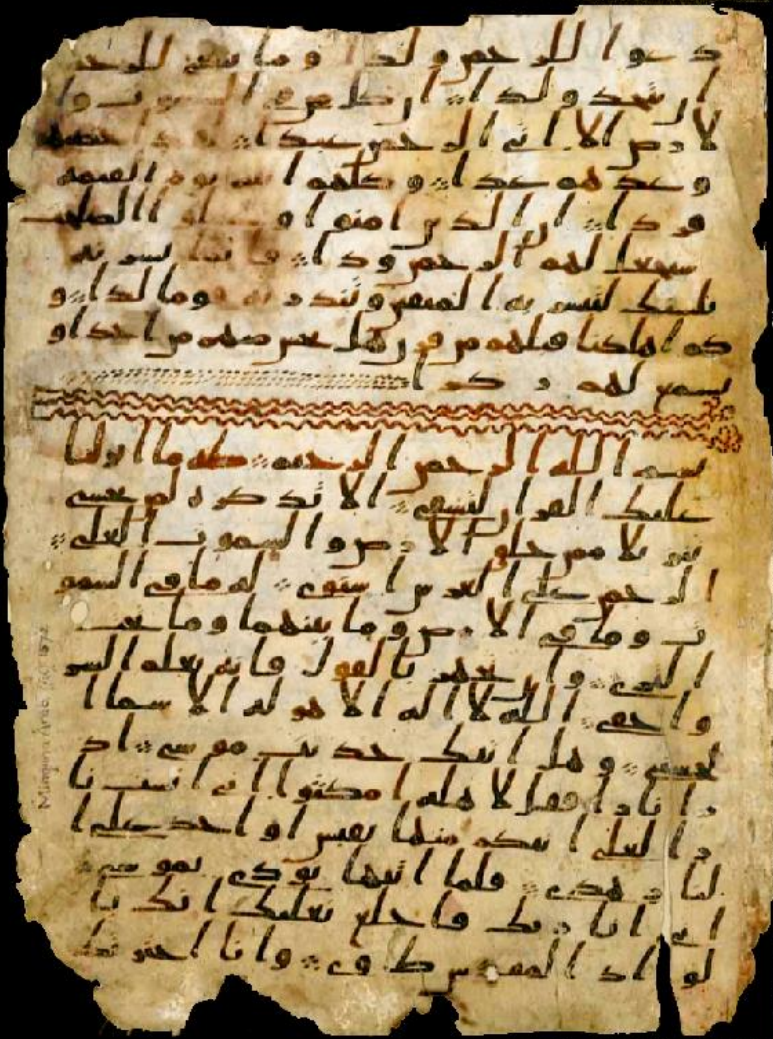 دعوا للرحمن ولدا وما ينبغي للرحمن
ان يتخذ ولدا ان كل من في السموت وا
لارض الا اتي الرحمن عبدا لقد احصيهم
وعدهم عدا وكلهم اتيه يوم القيمة
فردا ان الذين امنوا وعملوا الصلحت
سيجعل لهم الرحمن ودا فانما يسرنه
بلسنك لتبشر به المتقين وتنذر به قوما لدا و
كم اهلكنا قبلهم من قرن هل تحس منهم من احد او
تسمع لهم ركزا
بسم الله الرحمن الرحيم طه ما انزلنا
عليك القران لتشقى الا تذكرة لمن يخشى
تنزيلا ممن خلق الارض والسموت العلى
الرحمن على العرش استوى له ما في السمو
ت وما في الارض وما بينهما وما تحت
الثرى وان تجهر بالقول فانه يعلم السر
واخفى الله لا اله الا هو له الاسما ا
لحسنى وهل اتيك حديث موسى اذ
را نارا فقال لاهله امكثوا اني انست نا
را لعلي اتيكم منها بقبس او اجد على ا
لنار هدى فلما اتيها نودي يموسى
اني انا ربك فاخلع نعليك انك با
لواد المقدس طوى وانا اخترتك
Mingana Arab. 1572